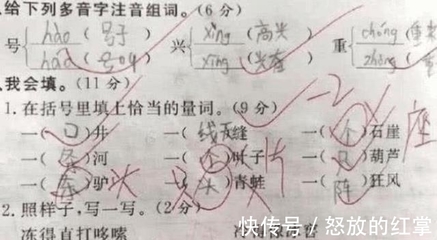 给下列多音字注音组词。(6分)
号 háo (号子) 兴 xīng (高兴) 重 chóng (重
hào (号叫) xīng (兴奋) zhòng (重
我会填。(11分)
1.在括号里填上恰当的量词。(9分) -2
一(口)井 一(线)天缝 一(个)石崖 座
一(条)河 一(个)叶子 片 一(只)葫芦
一(车)驴 头 一(头)青蛙 只 一(阵)狂风
2.照样子,写一写。(2分)
冻得直打哆嗦
快传号/怒放的红掌